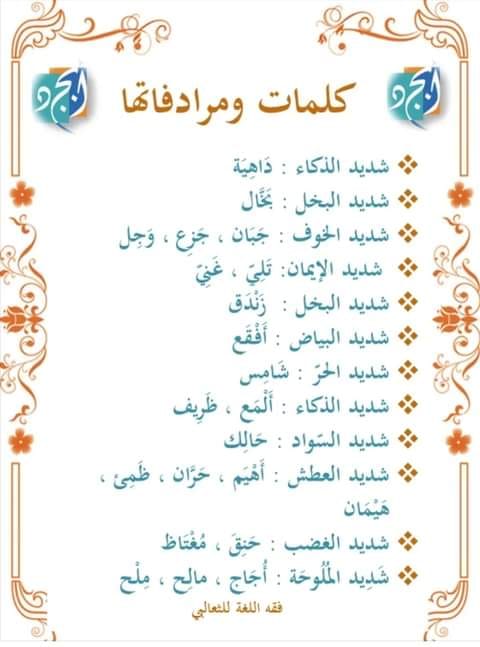 أبجد
أبجد
كلمات ومرادفاتها
شديد الذكاء : دَاهِيَة
شديد البخل : بَخَّال
شديد الخوف : جَبَان ، جَزِع ، وَجِل
شديد الإيمان: تَلِيّ ، غَنِيّ
شديد البخل : زَنْدَق
شديد البياض : أَفْقَع
شديد الحرّ : شَامِس
شديد الذكاء : أَلْمَع ، ظَرِيف
شديد السّواد : حَالِك
شديد العطش : أَهْيَم ، حَرَّان ، ظَمِئ ،
هَيْمَان
شديد الغضب : حَنِقَ ، مُغْتَاظ
شَدِيد المُلُوحَة : أُجَاج ، مالِح ، مِلْح
فقه اللغة للثعالبي